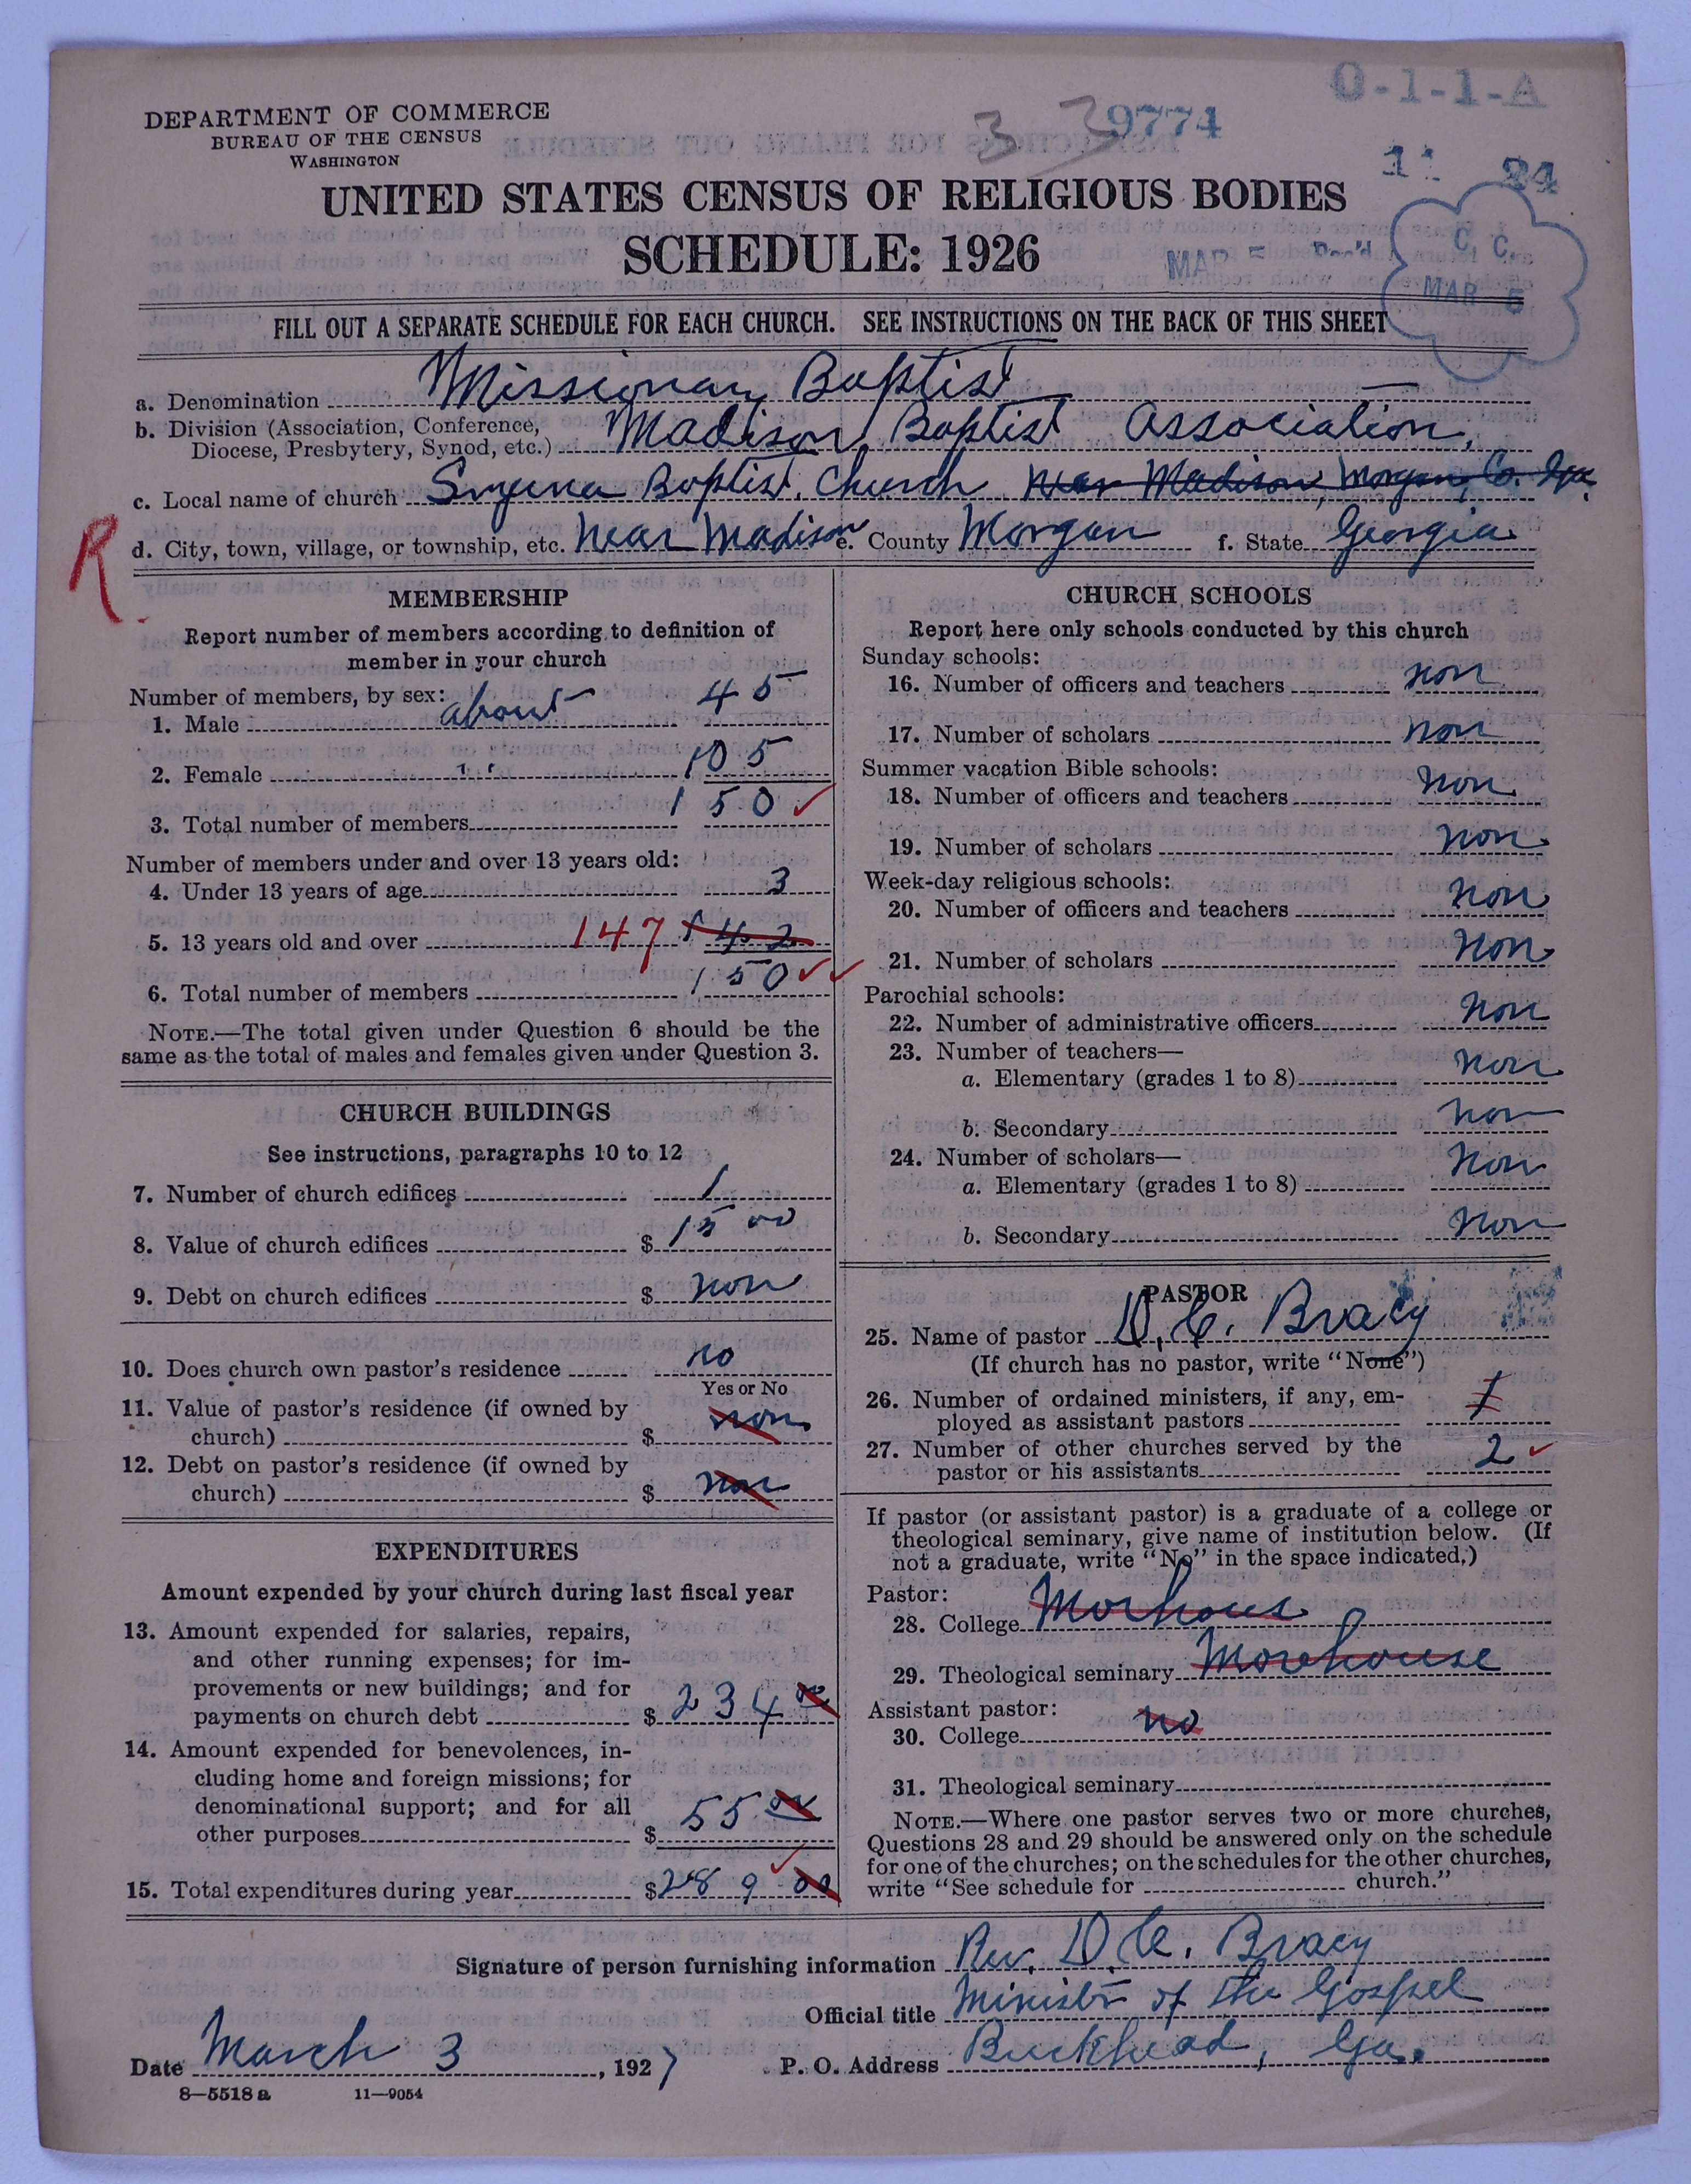 O-1-1-A
DEPARTMENT OF COMMERCE
BUREAU OF THE CENSUS
WASHINGTON
3 3 9774
11 24
UNITED STATES CENSUS OF RELIGIOUS BODIES
SCHEDULE: 1926
MAR 5 Rec'd
C. C.
MAR 5
FILL OUT A SEPARATE SCHEDULE FOR EACH CHURCH. SEE INSTRUCTIONS ON THE BACK OF THIS SHEET
a. Denomination Missionary Baptist
b. Division (Association, Conference, Diocese, Presbytery, Synod, etc.) Madison Baptist Association,
c. Local name of church Smyrna Baptist Church near Madison, Morgan, Co. Ga.
R.
d. City, town, village, or township, etc. Near Madison e. County Morgan f. State Georgia
MEMBERSHIP
Report number of members according to definition of
member in your church
Number of members, by sex:
1. Male about 45
2. Female " 105
3. Total number of members 150
Number of members under and over 13 years old:
4. Under 13 years of age 3
5. 13 years old and over 147 142
6. Total number of members 150
NOTE.—The total given under Question 6 should be the
same as the total of males and females given under Question 3.
CHURCH BUILDINGS
See instructions, paragraphs 10 to 12
7. Number of church edifices 1
8. Value of church edifices $ 1500
9. Debt on church edifices $ non
10. Does church own pastor's residence no
Yes or No
11. Value of pastor's residence (if owned by
church) $ non
12. Debt on pastor's residence (if owned by
church) $ non
EXPENDITURES
Amount expended by your church during last fiscal year
13. Amount expended for salaries, repairs,
and other running expenses; for im-
provements or new buildings; and for
payments on church debt $ 234 00
14. Amount expended for benevolences, in-
cluding home and foreign missions; for
denominational support; and for all
other purposes $ 55 00
15. Total expenditures during year $ 289 00
CHURCH SCHOOLS
Report here only schools conducted by this church
Sunday schools:
16. Number of officers and teachers non
17. Number of scholars non
Summer vacation Bible schools:
18. Number of officers and teachers non
19. Number of scholars non
Week-day religious schools:
20. Number of officers and teachers non
21. Number of scholars non
Parochial schools:
22. Number of administrative officers non
23. Number of teachers—
a. Elementary (grades 1 to 8) non
b. Secondary non
24. Number of scholars—
a. Elementary (grades 1 to 8) non
b. Secondary non
PASTOR
25. Name of pastor D. C. Bracy
(If church has no pastor, write "None")
26. Number of ordained ministers, if any, em-
ployed as assistant pastors 1
27. Number of other churches served by the
pastor or his assistants 2
If pastor (or assistant pastor) is a graduate of a college or
theological seminary, give name of institution below. (If
not a graduate, write "No" in the space indicated.)
Pastor:
28. College Morhous
29. Theological seminary Morehouse
Assistant pastor:
30. College no
31. Theological seminary
NOTE.—Where one pastor serves two or more churches,
Questions 28 and 29 should be answered only on the schedule
for one of the churches; on the schedules for the other churches,
write "See schedule for church."
Signature of person furnishing information Rev. D. C. Bracy
Official title Minister of the Gospel
Date March 3, 1927 P. O. Address Buckhead, Ga.
8—5518 a 11—9054